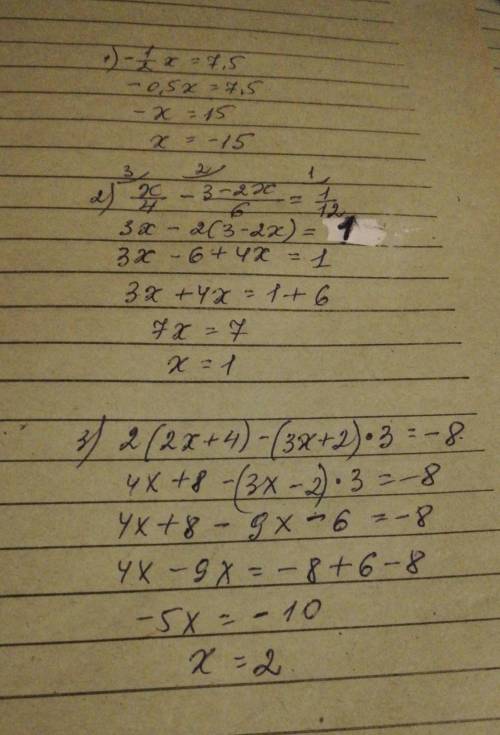 1) -1/2 x = 7,5
-0,5x = 7,5
-x = 15
x = -15
3 2 1
2) x/4 - 3-2x/6 = 1/12
3x - 2(3-2x) = 1
3x - 6 + 4x = 1
3x + 4x = 1 + 6
7x = 7
x = 1
3) 2(2x+4)-(3x+2)·3 = -8
4x + 8 - (3x - 2)·3 = -8
4x + 8 - 9x - 6 = -8
4x - 9x = -8 + 6 - 8
-5x = -10
x = 2